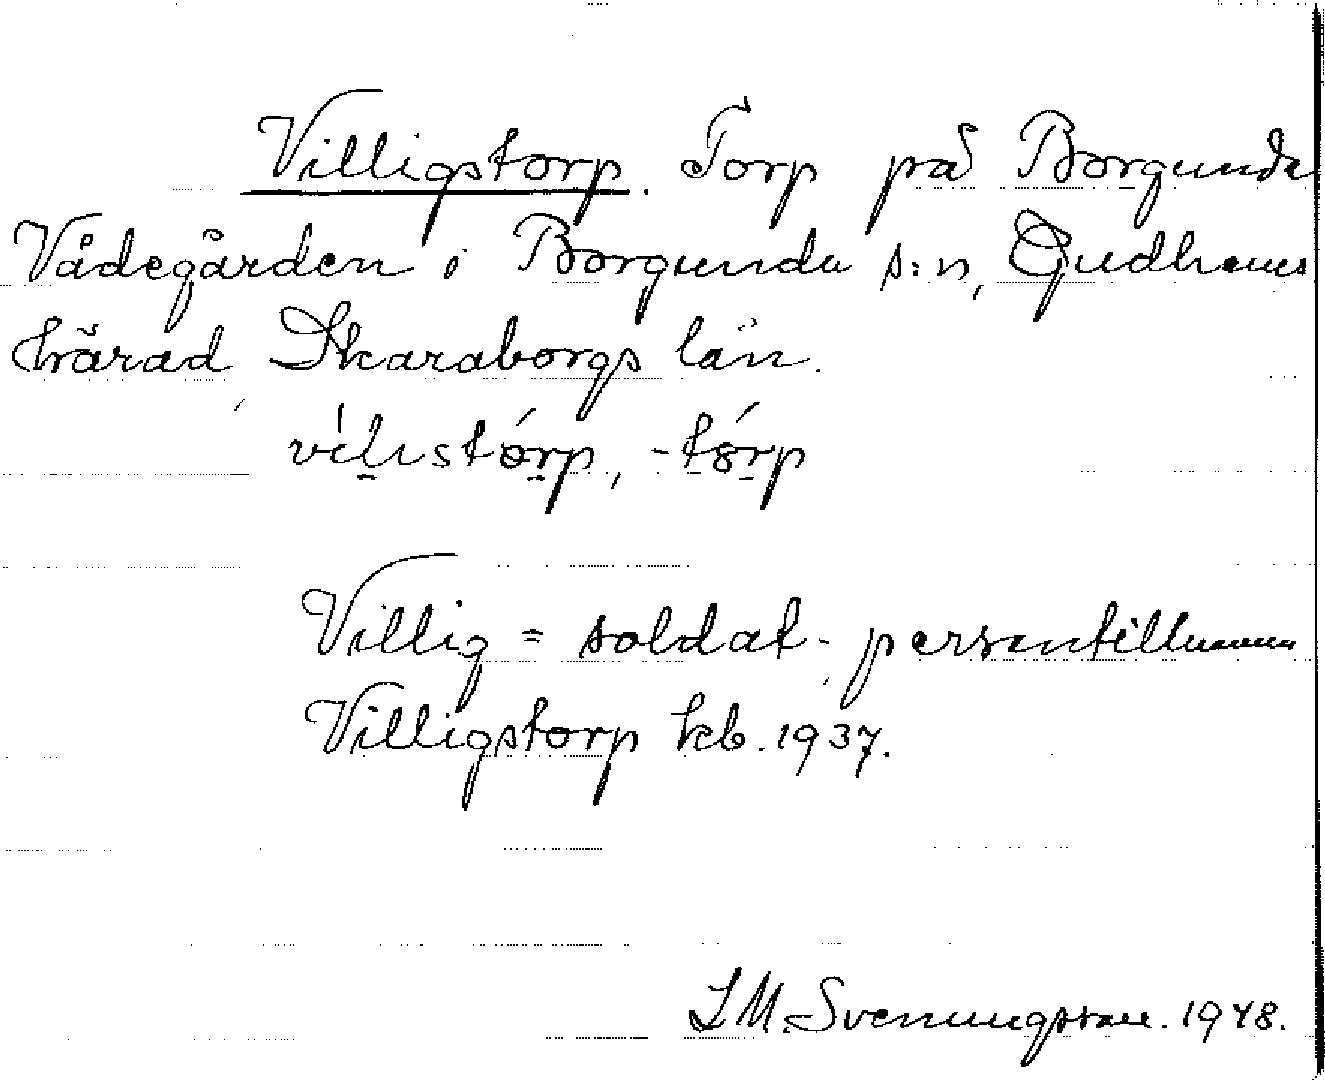 Villigstorp. Torp på Borgunda
Vådegården i Borgunda s:n, Gudhems
härad, Skaraborgs län.
-tórp
Villig = soldat-, persontillnamn
Villigstorp kb. 1937.
Svenungsson. 1948.